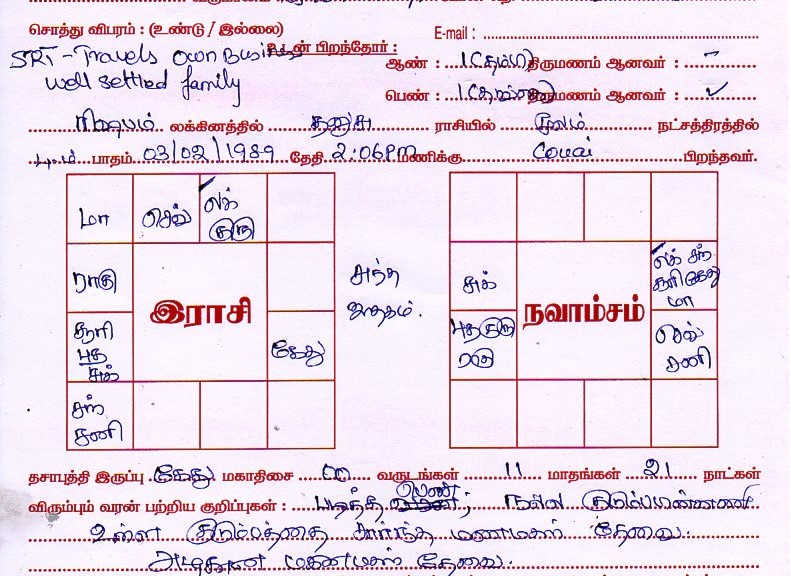 சொத்து விபரம் : (உண்டு / இல்லை)
E-mail :
SRT - Travels Own Business
உடன் பிறந்தோர் :
ஆண் : 1 திருமணம் ஆனவர் : -
well settled family
பெண் : 1 திருமணம் ஆனவர் : ✓
ரிஷபம் லக்கினத்தில் தனுசு ராசியில் மூலம் நட்சத்திரத்தில்
4ம் பாதம் 03/02/1989 தேதி 2:06 PM மணிக்கு கோவை பிறந்தவர்.
மா செவ் லக் குரு
ராகு
சூரி புத சுக்
சந் சனி
கேது
இராசி
சுத்த ஜாதகம்.
சுக்
லக் சந் சூரி கேது மா
புத குரு ராகு
செவ் சனி
நவாம்சம்
தசாபுத்தி இருப்பு கேது மகாதிசை 00 வருடங்கள் 11 மாதங்கள் 21 நாட்கள்
விரும்பும் வரன் பற்றிய குறிப்புகள் : படித்த நல்ல
உள்ள குடும்பத்தை சார்ந்த மணமகள் தேவை.
மணமகள் தேவை.